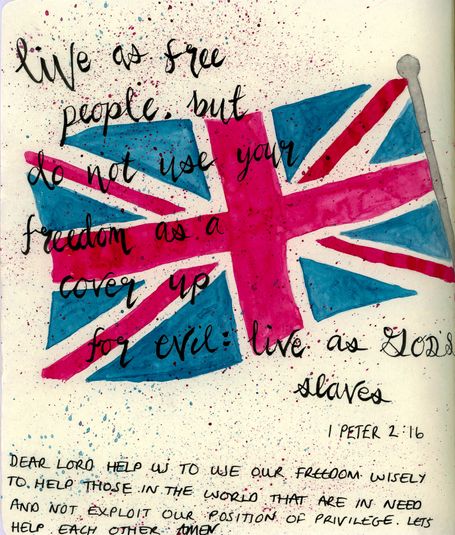 live as free
people. but
do not use your
freedom as a
cover up
for evil: live as GODS
slaves
1 PETER 2:16
DEAR LORD HELP US TO USE OUR FREEDOM WISELY
TO HELP THOSE IN THE WORLD THAT ARE IN NEED
AND NOT EXPLOIT OUR POSITION OF PRIVILEGE. LETS
HELP EACH OTHER AMEN